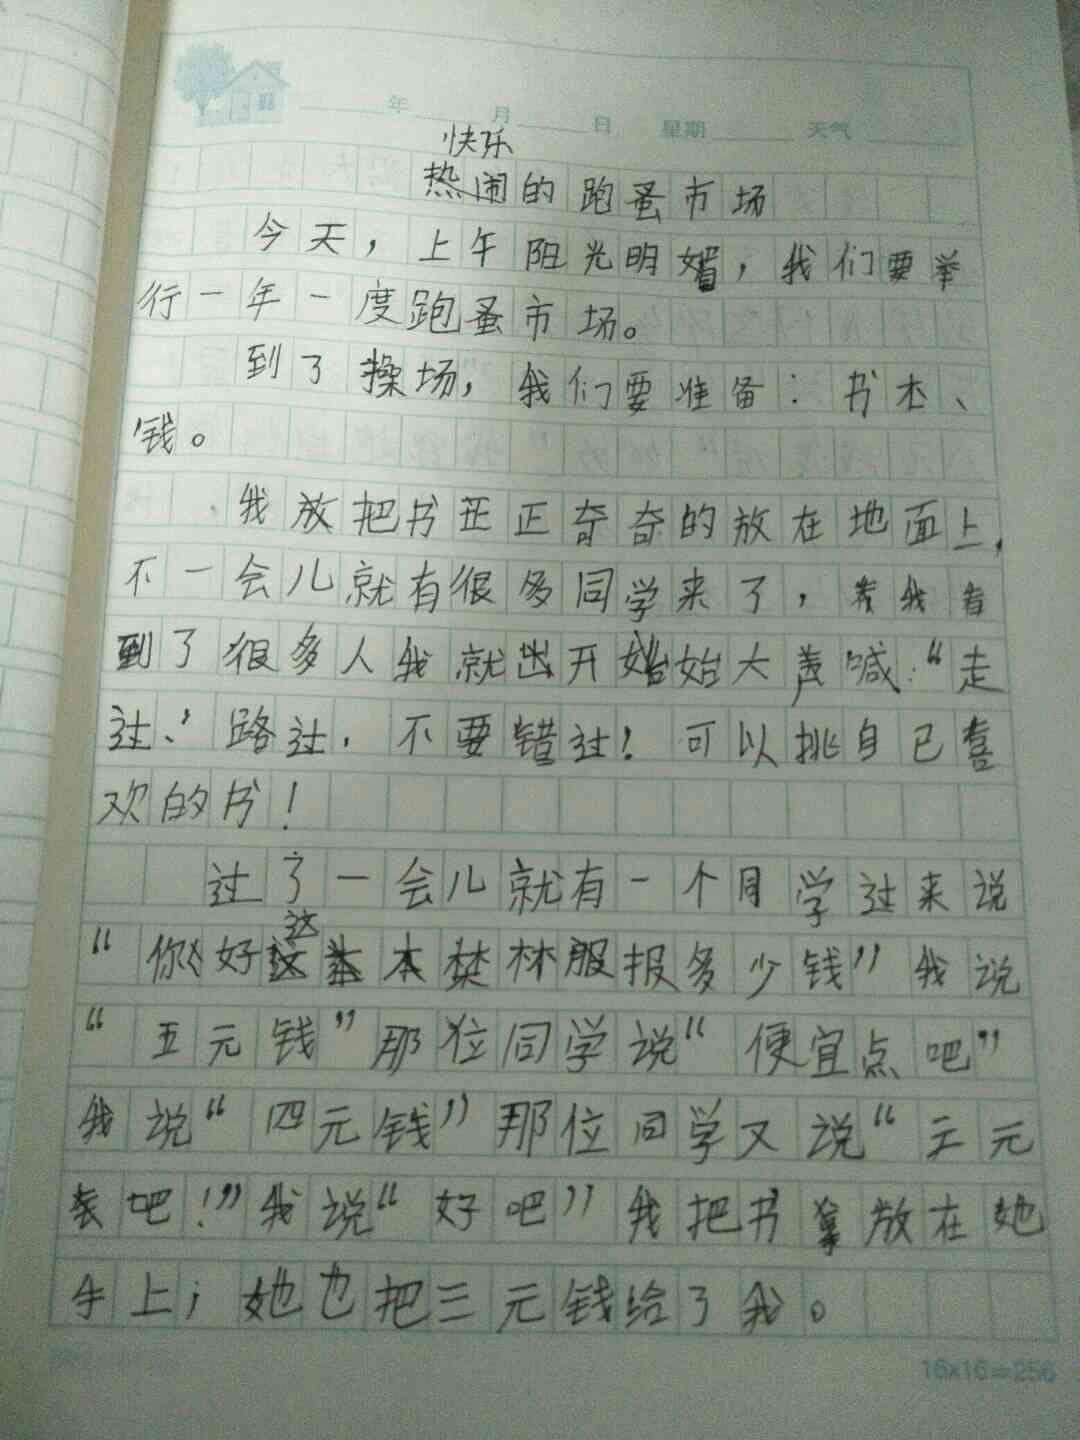 年 月 日 星期 天气
快乐
热闹的跑蚤市场
今天，上午阳光明媚，我们要举
行一年一度跑蚤市场。
到了操场，我们要准备：书本、
钱。
我放把书正正奇奇的放在地面上，
不一会儿就有很多同学来了，我看
到了很多人我就出开始大声喊：“走
过、路过，不要错过！可以挑自己喜
欢的书！
过了一会儿就有一个同学过来说
“你好这本林服报多少钱”我说
“五元钱”那位同学说“便宜点吧”
我说“四元钱”那位同学又说“三元
钱吧！”我说“好吧”我把书拿放在她
手上；她也把三元钱给了我。
16x16=256